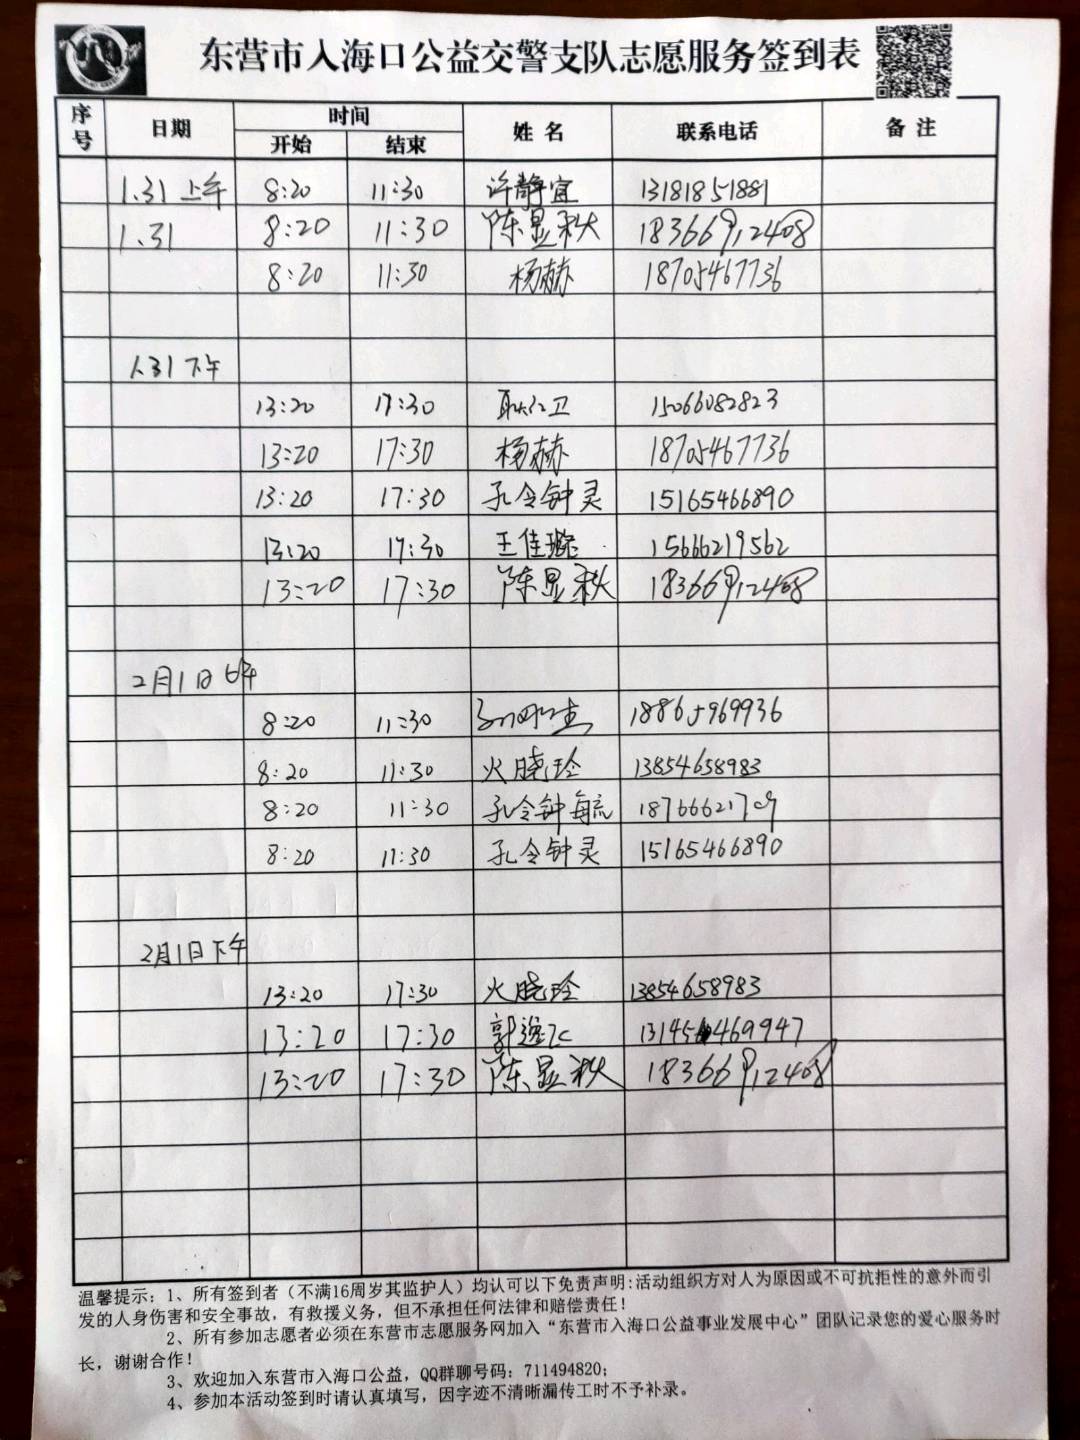 东营市入海口公益交警支队志愿服务签到表
序号 日期 时间 姓名 联系电话 备注
开始 结束
1.31 上午 8:20 11:30 许静宜 13181851881
1.31 8:20 11:30 陈显秋 18366912408
8:20 11:30 杨赫 18705467736
1.31 下午
13:20 17:30 耿红卫 15066082823
13:20 17:30 杨赫 18705467736
13:20 17:30 孔令钟灵 15165466890
13:20 17:30 王佳璐 15666219562
13:20 17:30 陈显秋 18366912408
2月1日上午
8:20 11:30 18865969936
8:20 11:30 火晓玲 13854658983
8:20 11:30 孔令钟毓
8:20 11:30 孔令钟灵 15165466890
2月1日下午
13:20 17:30 火晓玲 13854658983
13:20 17:30 郭逸飞
13:20 17:30 陈显秋 18366912408
温馨提示：1、所有签到者（不满16周岁其监护人）均认可以下免责声明:活动组织方对人为原因或不可抗拒性的意外而引
发的人身伤害和安全事故，有救援义务，但不承担任何法律和赔偿责任！
2、所有参加志愿者必须在东营市志愿服务网加入“东营市入海口公益事业发展中心”团队记录您的爱心服务时
长，谢谢合作！
3、欢迎加入东营市入海口公益，QQ群聊号码：711494820；
4、参加本活动签到时请认真填写，因字迹不清晰漏传工时不予补录。